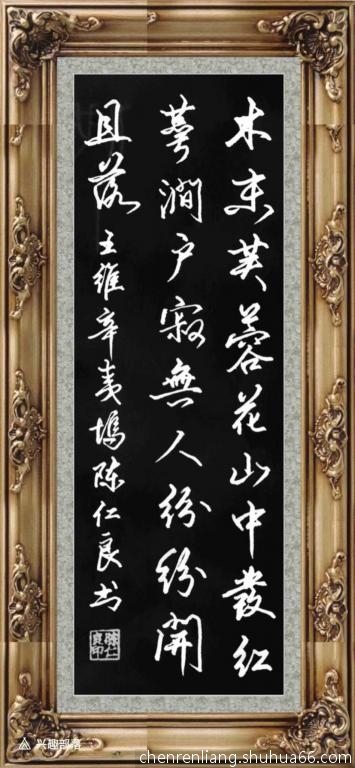 木末芙蓉花山中發紅
萼澗户寂無人紛紛開
且落
王維辛夷塢陈仁良书
陈仁良印
兴趣部落
chenrenliang.shuhua66.com